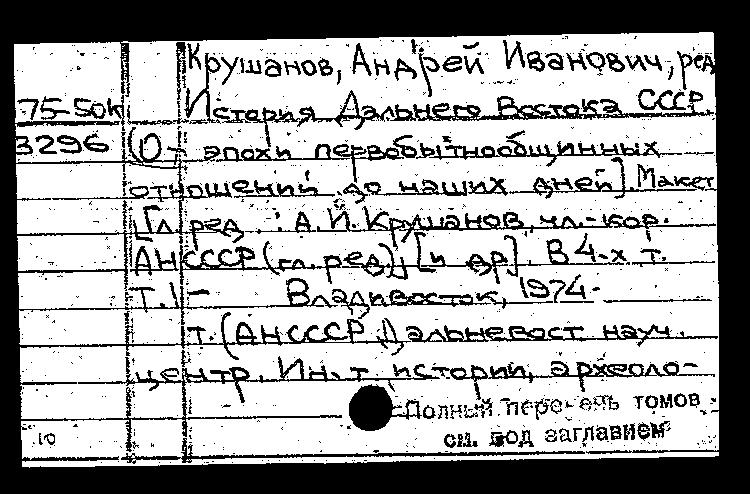 Крушанов, Андрей Иванович, ред
75-50к История Дальнего Востока СССР.
3296 (От эпохи первобытнообщинных
отношений до наших дней]. Макет
[Гл. ред. : А.И. Крушанов, чл.-кор.
АН СССР (гл. ред), [и др]. В 4-х т.
Т.1- Владивосток, 1974-
т. (АН СССР Дальневост науч.
центр. Ин-т истории, археоло-
Полный перечень томов
см. под заглавием
10